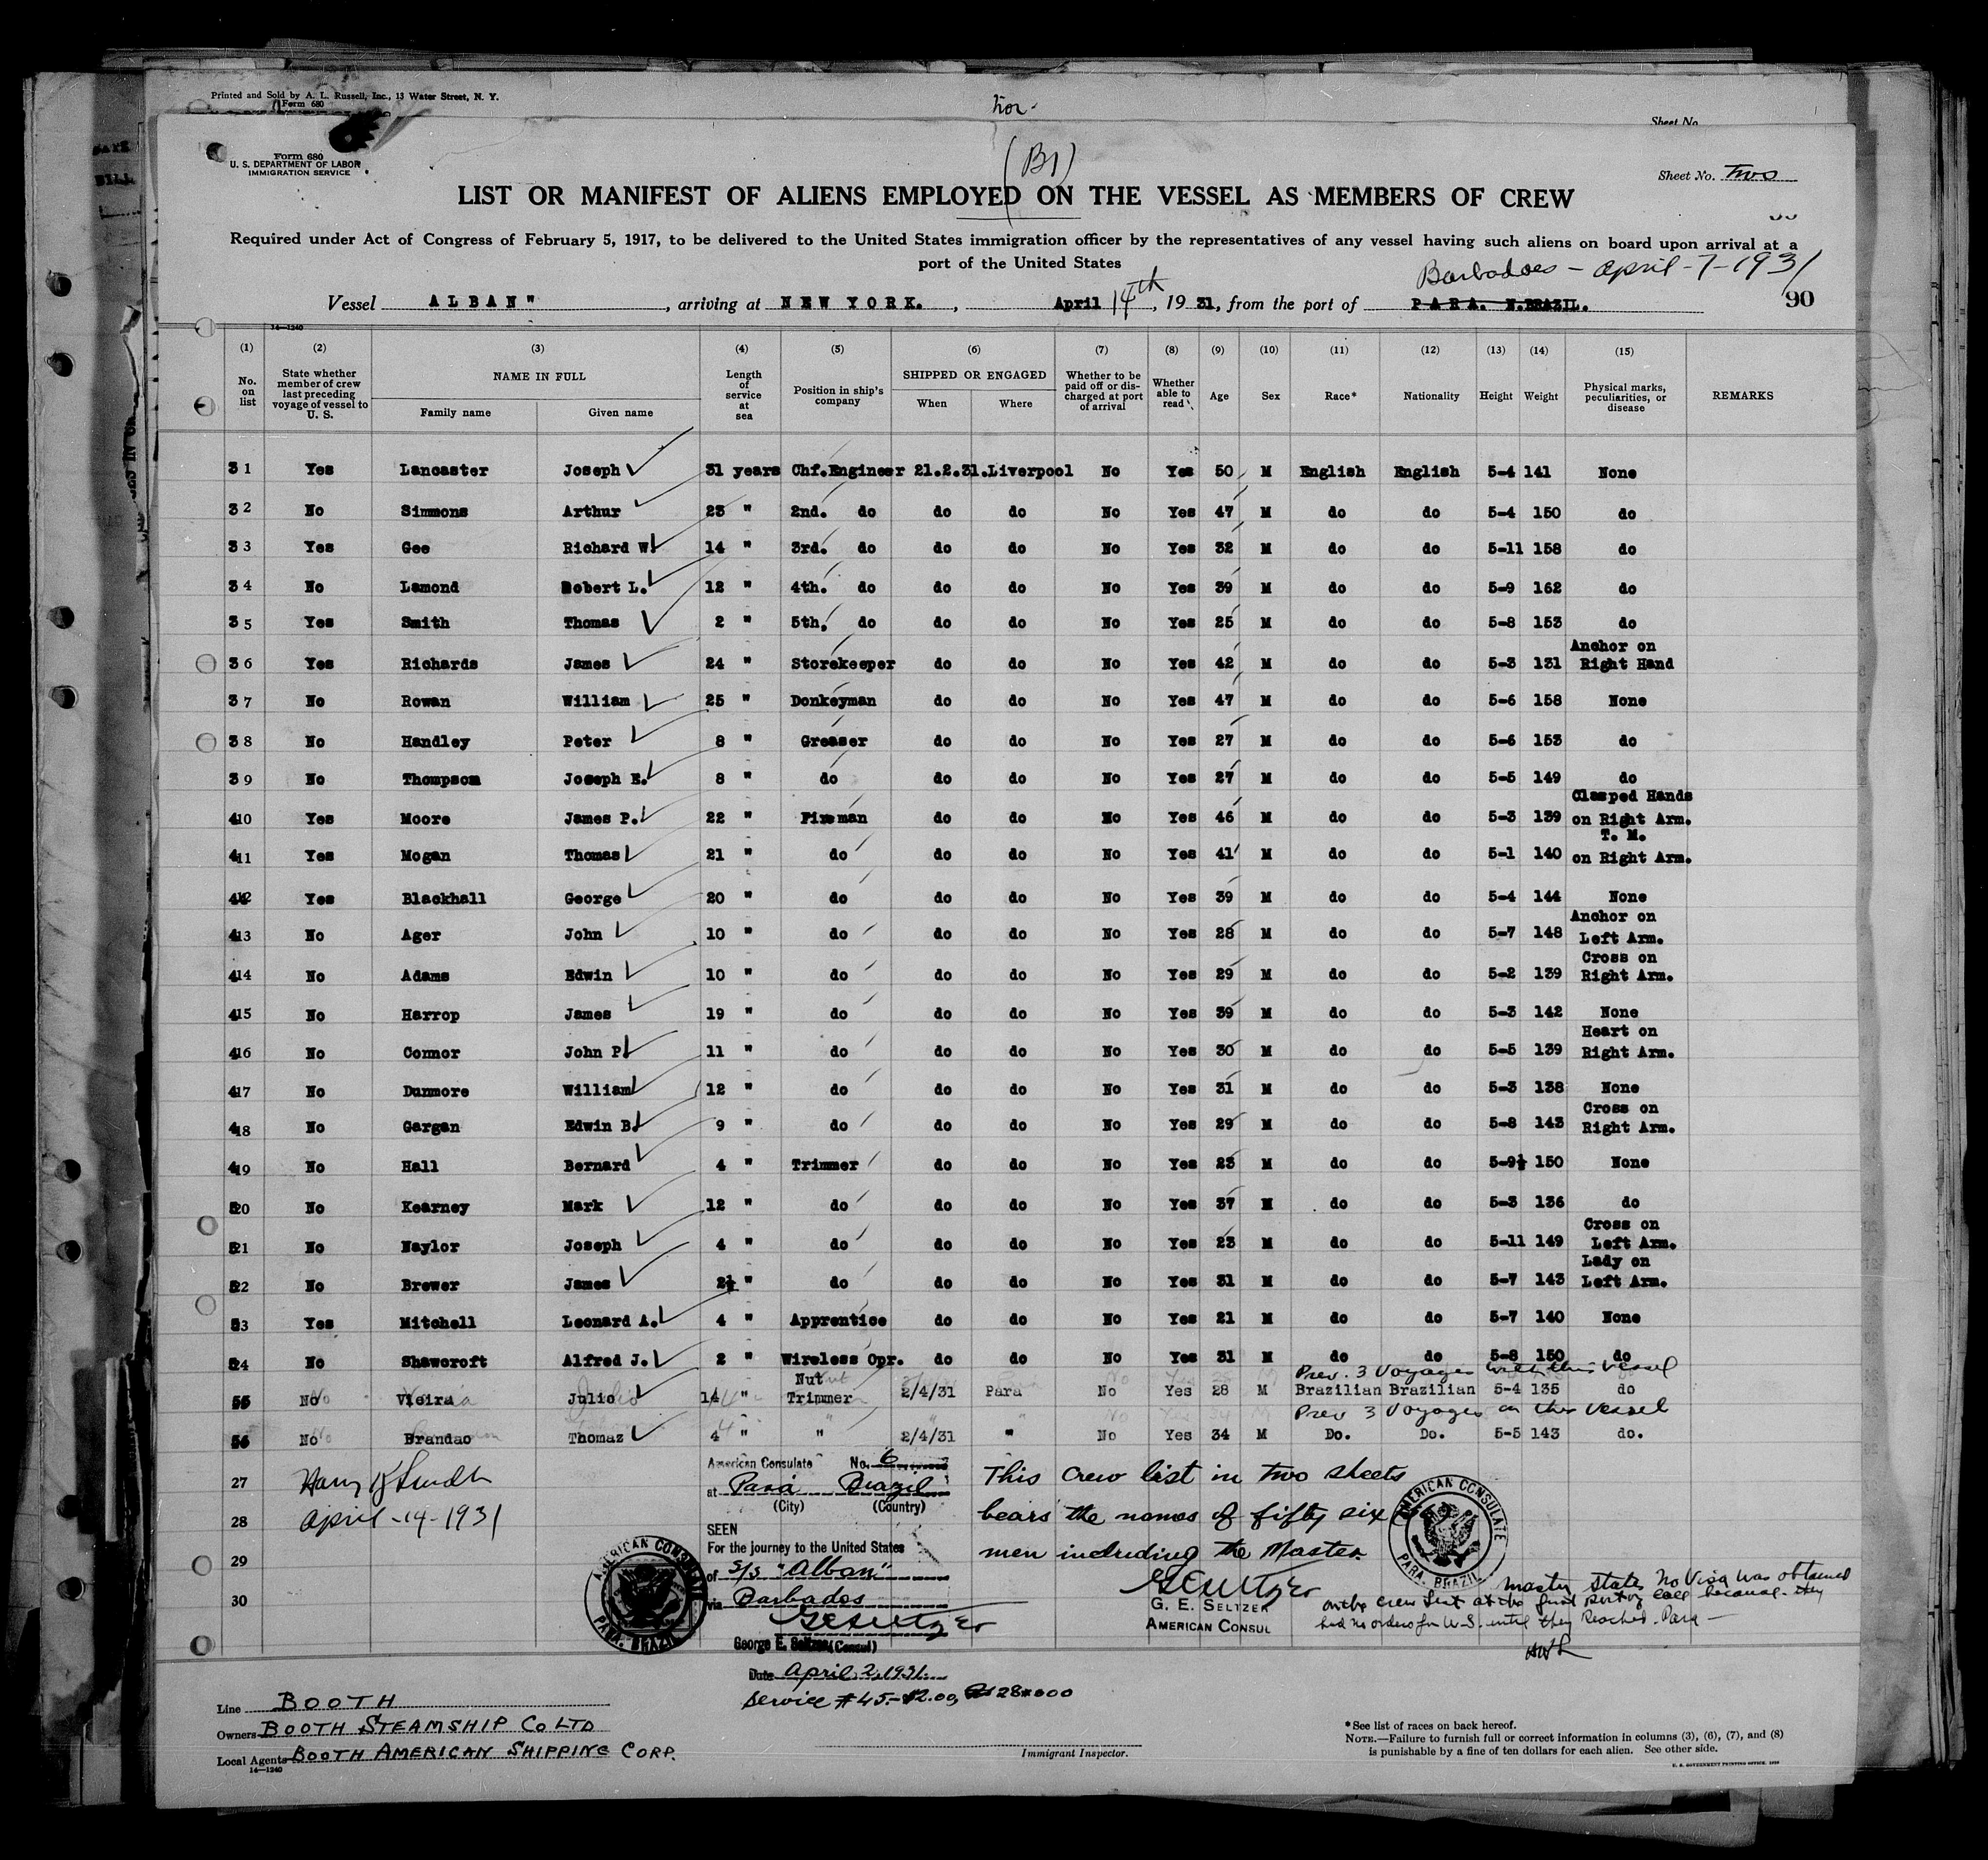 Printed and Sold by A. L. Russell, Inc., 13 Water Street, N. Y.
Form 680
Sheet No.
Form 680
U. S. DEPARTMENT OF LABOR
IMMIGRATION SERVICE
(B1)
Sheet No. Two
LIST OR MANIFEST OF ALIENS EMPLOYED ON THE VESSEL AS MEMBERS OF CREW
Required under Act of Congress of February 5, 1917, to be delivered to the United States immigration officer by the representatives of any vessel having such aliens on board upon arrival at a
port of the United States
Barbadoes - April-7-1931
Vessel ALBAN" , arriving at NEW YORK. , April 14th, 19 31, from the port of PARA. N.BRAZIL. 90
14—1240
(1) (2) (3) (4) (5) (6) (7) (8) (9) (10) (11) (12) (13) (14) (15)
No. on list
State whether member of crew last preceding voyage of vessel to U. S.
NAME IN FULL
Family name Given name
Length of service at sea
Position in ship's company
SHIPPED OR ENGAGED
When Where
Whether to be paid off or discharged at port of arrival
Whether able to read
Age Sex Race* Nationality Height Weight
Physical marks, peculiarities, or disease
REMARKS
31 Yes Lancaster Joseph 31 years Chf.Engineer 21.2.31.Liverpool No Yes 50 M English English 5-4 141 None
32 No Simmons Arthur 23 " 2nd. do do do No Yes 47 M do do 5-4 150 do
33 Yes Gee Richard W 14 " 3rd. do do do No Yes 32 M do do 5-11 158 do
34 No Lamond Robert L. 12 " 4th. do do do No Yes 39 M do do 5-9 162 do
35 Yes Smith Thomas 2 " 5th, do do do No Yes 25 M do do 5-8 153 do
36 Yes Richards James 24 " Storekeeper do do No Yes 42 M do do 5-3 131 Anchor on Right Hand
37 No Rowan William 25 " Donkeyman do do No Yes 47 M do do 5-6 158 None
38 No Handley Peter 8 " Greaser do do No Yes 27 M do do 5-6 153 do
39 No Thompson Joseph E. 8 " do do do No Yes 27 M do do 5-5 149 do
410 Yes Moore James P. 22 " Fireman do do No Yes 46 M do do 5-3 139 Clasped Hands on Right Arm.
411 Yes Mogan Thomas 21 " do do do No Yes 41 M do do 5-1 140 T. M. on Right Arm.
412 Yes Blackhall George 20 " do do do No Yes 39 M do do 5-4 144 None
413 No Ager John 10 " do do do No Yes 28 M do do 5-7 148 Anchor on Left Arm.
414 No Adams Edwin 10 " do do do No Yes 29 M do do 5-2 139 Cross on Right Arm.
415 No Harrop James 19 " do do do No Yes 39 M do do 5-3 142 None
416 No Connor John P 11 " do do do No Yes 30 M do do 5-5 139 Heart on Right Arm.
417 No Dunmore William 12 " do do do No Yes 31 M do do 5-3 138 None
418 No Gargan Edwin B. 9 " do do do No Yes 29 M do do 5-8 143 Cross on Right Arm.
419 No Hall Bernard 4 " Trimmer do do No Yes 23 M do do 5-9½ 150 None
520 No Kearney Mark 12 " do do do No Yes 37 M do do 5-3 136 do
521 No Naylor Joseph 4 " do do do No Yes 23 M do do 5-11 149 Cross on Left Arm.
522 No Brewer James 2½ " do do do No Yes 31 M do do 5-7 143 Lady on Left Arm.
523 Yes Mitchell Leonard A. 4 " Apprentice do do No Yes 21 M do do 5-7 140 None
524 No Shawcroft Alfred J. 2 " Wireless Opr. do do No Yes 31 M do do 5-8 150 do
Prev. 3 Voyages with this vessel
55 No Vieira Julio 14 " Nut Trimmer 2/4/31 Para No Yes 28 M Brazilian Brazilian 5-4 135 do
Prev 3 Voyages on this vessel
56 No Brandao Thomaz 4 " " 2/4/31 " No Yes 34 M Do. Do. 5-5 143 do.
27
28 April-14-1931
29
30
American Consulate No. 6
at Pará Brazil
(City) (Country)
SEEN
For the journey to the United States
of S/S "Alban"
via Barbados
George E. Seltzer (Consul)
Date April 2, 1931.
Service #45.- $2.00,
AMERICAN CONSULATE PARA, BRAZIL
This crew list in two sheets
bears the names of fifty six
men including the Master.
G. E. SELTZER
AMERICAN CONSUL
AMERICAN CONSULATE PARA, BRAZIL
Master states no Visa was obtained
on the crew list at the first port of call because they
had no orders for U-S. until they reached Para-
Line BOOTH
Owners BOOTH STEAMSHIP Co LTD
Local Agents BOOTH AMERICAN SHIPPING CORP.
14—1240
Immigrant Inspector.
*See list of races on back hereof.
NOTE.—Failure to furnish full or correct information in columns (3), (6), (7), and (8)
is punishable by a fine of ten dollars for each alien. See other side.
U. S. GOVERNMENT PRINTING OFFICE